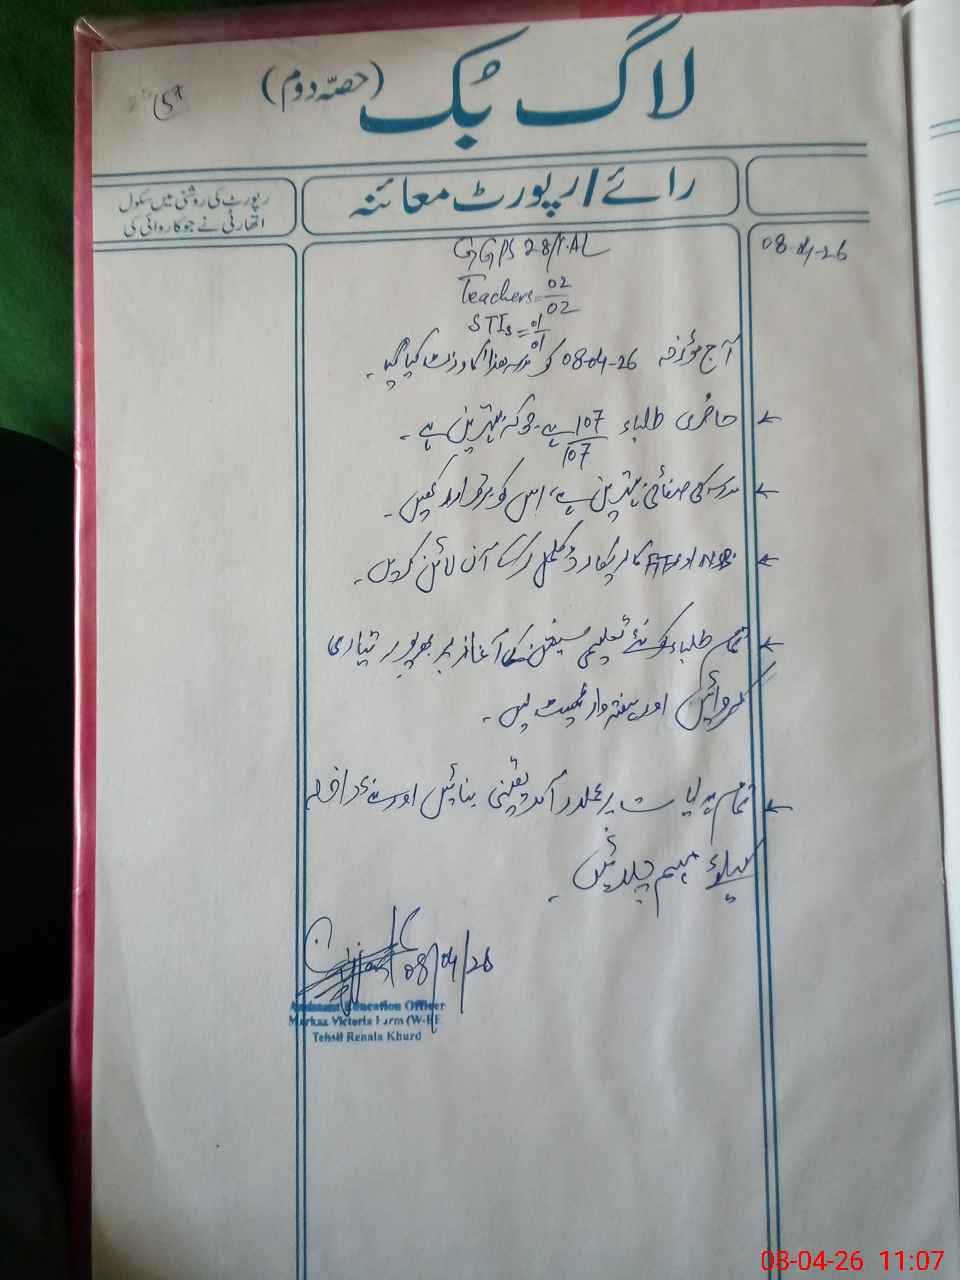 لاگ بک (حصہ دوم)
رائے/رپورٹ معائنہ
رپورٹ کی روشنی میں سکول
اتھارٹی نے جو کاروائی کی
08-04-26
GGPS 28/1.AL
Teachers = 02/02
STIs = 01/01
آج مؤرخہ 08-04-26 کو مدرسہ ھذا کا وزٹ کیا گیا۔
حاضری طلباء 107/107 ہے۔ جو کہ بہترین ہے۔
مدرسہ کی صفائی بہترین ہے، اس کو برقرار رکھیں۔
NSB اور FTF کا ریکارڈ مکمل کر کے آن لائن کریں۔
تمام طلباء کو نئے تعلیمی سیشن کے آغاز پر بھرپور تیاری
کروائیں اور ہفتہ وار ٹیسٹ لیں۔
تمام ہدایات پر عملدرآمد یقینی بنائیں اور نئے داخلہ
کیلئے مہم چلائیں۔
08/04/26
Assistant Education Officer
Markaz Victoria Farm (W-EE
Tehsil Renala Khurd
08-04-26 11:07